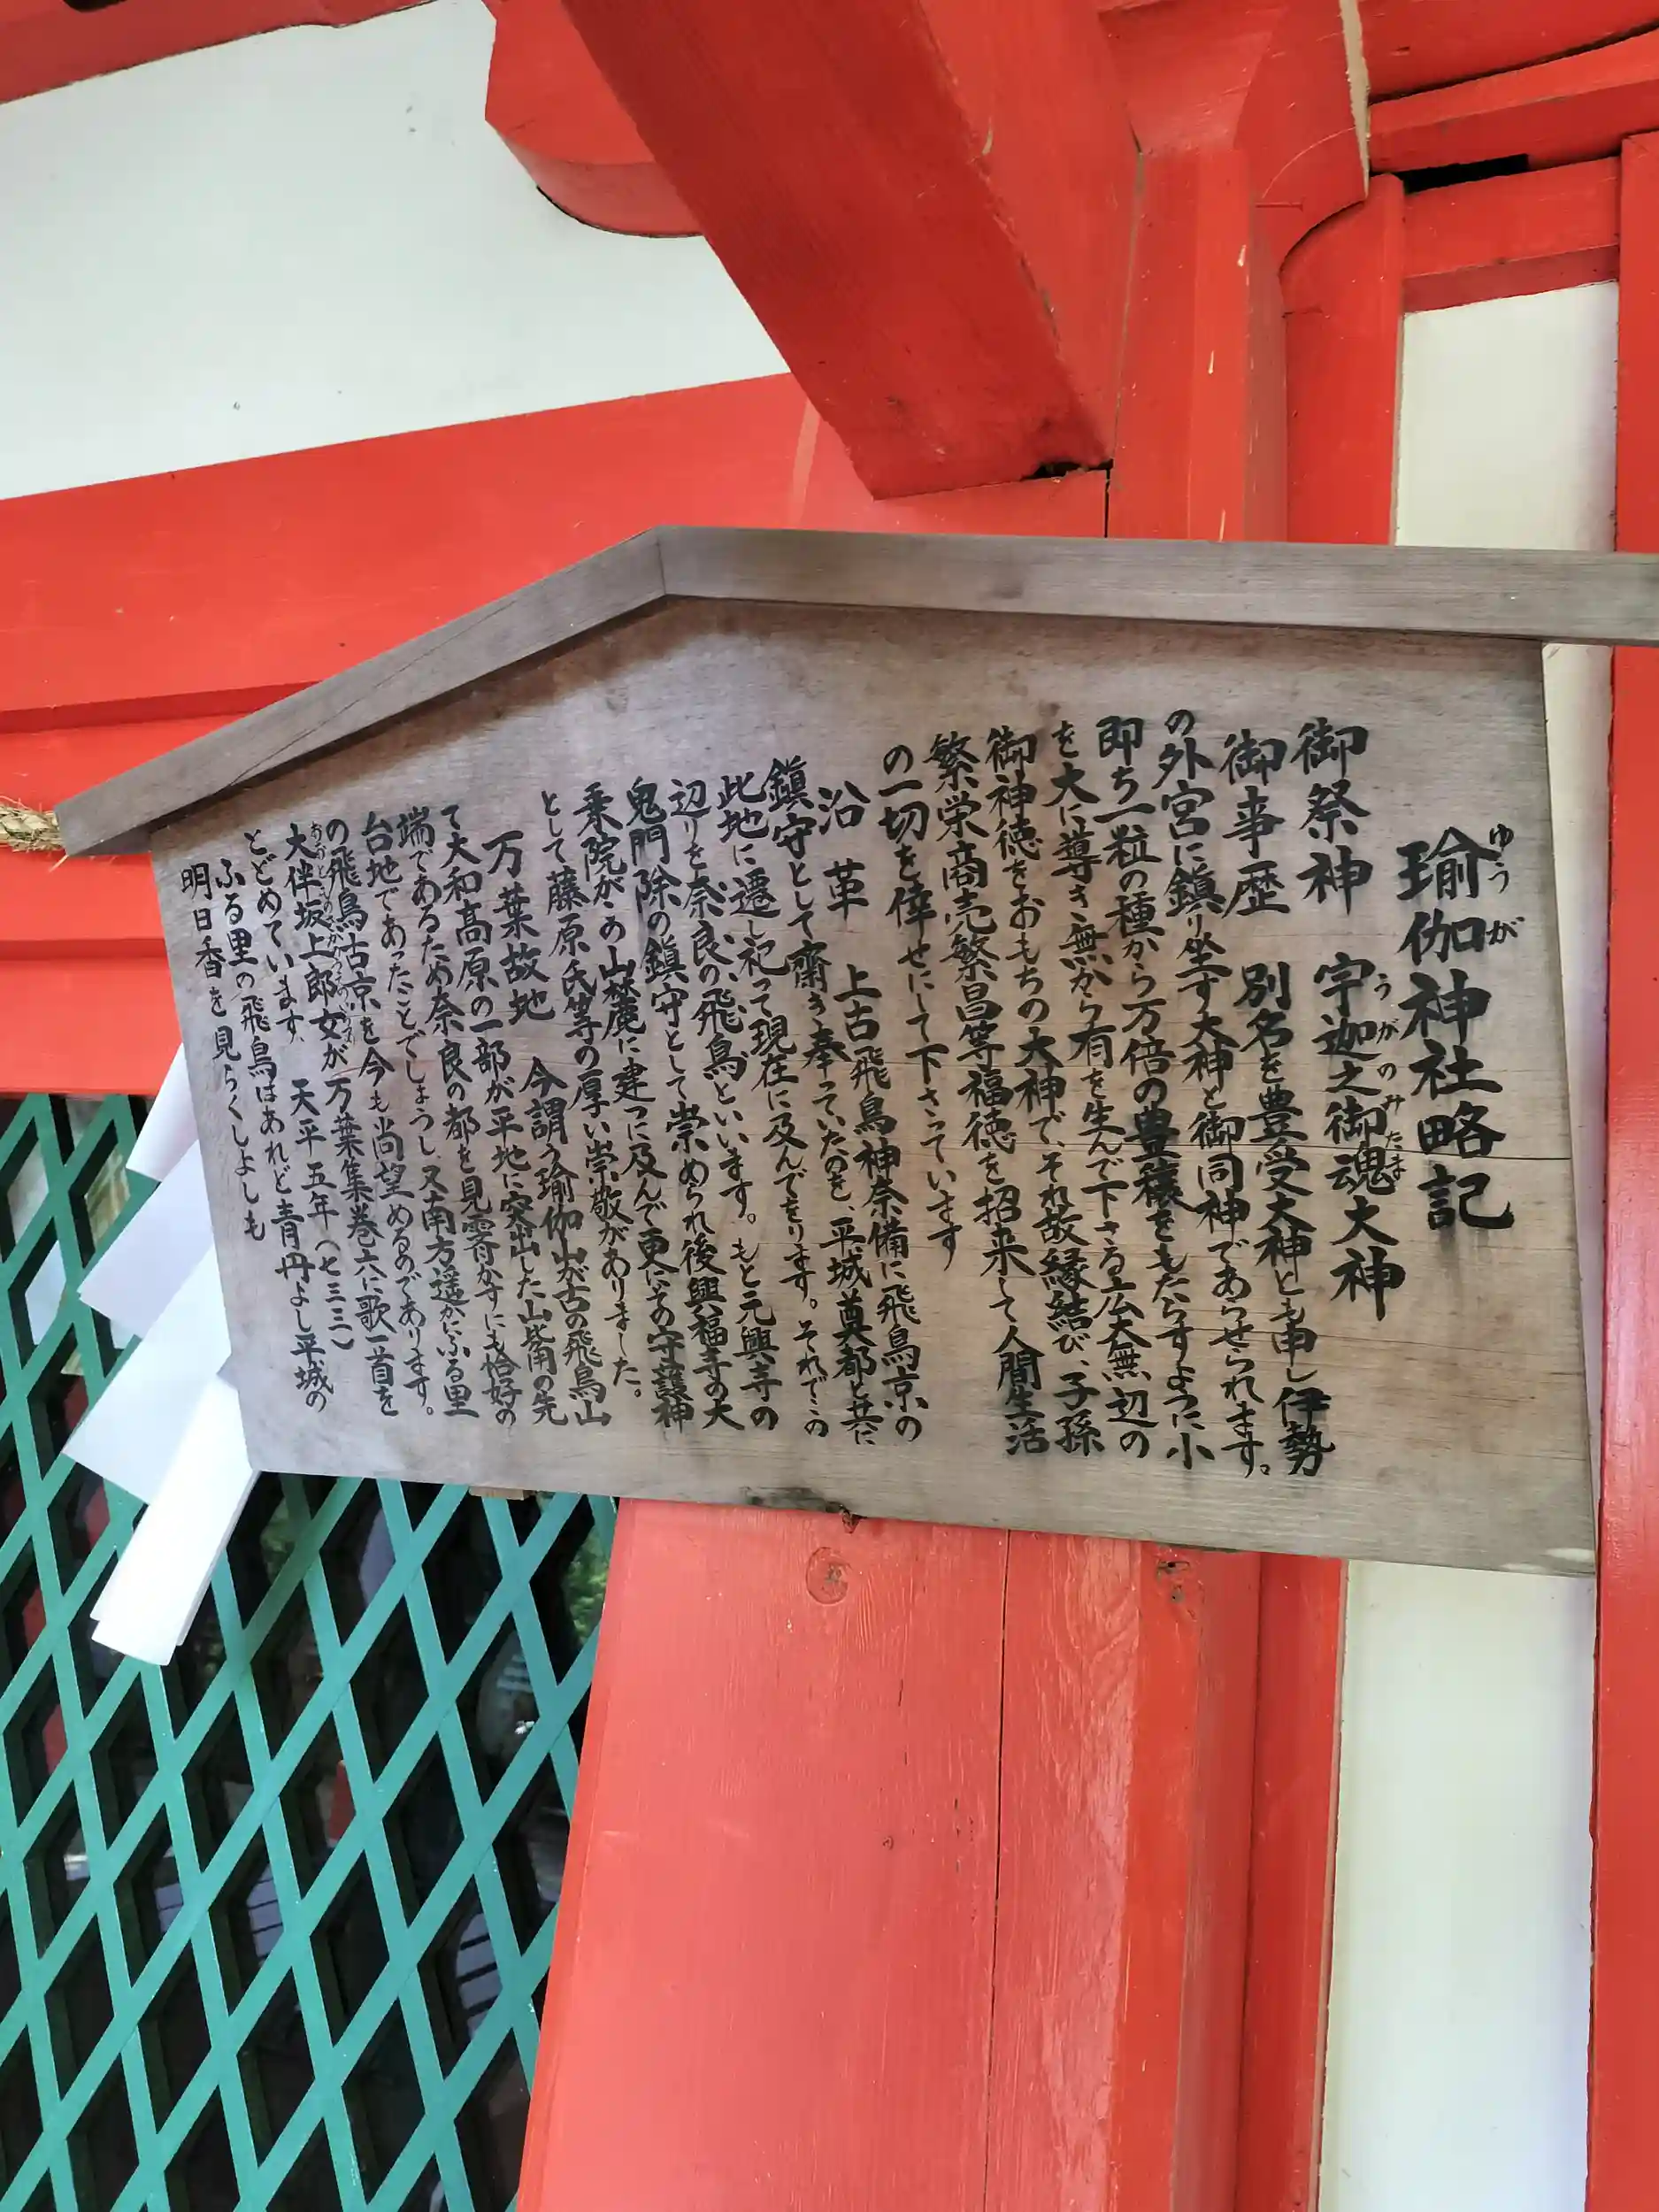 瑜伽神社略記
ゆうが
御祭神　宇迦之御魂大神
うがのみたま
御事歴　別名を豊受大神とも申し伊勢
の外宮に鎮り坐す大神と御同神であらせられます。
即ち一粒の種から万倍の豊穣をもたらすように小
を大に導き無から有を生んで下さる広大無辺の
御神徳をおもちの大神で、それ故縁結び、子孫
繁栄商売繁昌等福徳を招来して人間生活
の一切を倖せにして下さっています
沿　革　上古飛鳥神奈備に飛鳥京の
鎮守として齋き奉っていたのを、平城奠都と共に
此地に遷し祀って現在に及んでをります。それでこの
辺りを奈良の飛鳥といいます。もと元興寺の
鬼門除の鎮守として崇められ後興福寺の大
乗院がこの山麓に建つに及んで更にその守護神
として藤原氏等の厚い崇敬がありました。
万葉故地　今謂う瑜伽山が古の飛鳥山
て大和高原の一部が平地に突出した山柴南の先
端であるため奈良の都を見霽かすにも恰好の
台地であったことでしょうし、又南方遥かにふる里
の飛鳥古京を今も尚望めるのであります。
大伴坂上郎女が万葉集巻六に歌一首を
おおとものさかのうえのいらつめ
とどめています、　天平五年（七三三）
ふる里の飛鳥はあれど青丹よし平城の
明日香を見らくしよしも